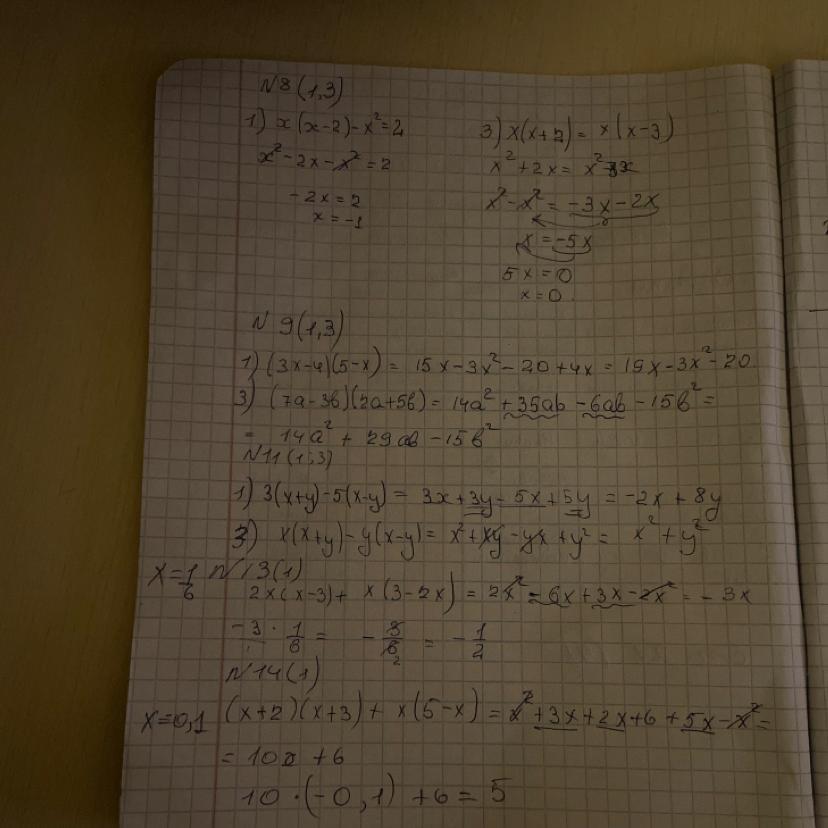 N8(1,3)
1) x(x-2)-x²=2
x²-2x-x²=2
-2x=2
x=-1
3) x(x+2)=x(x-3)
x²+2x=x²-3x
x²-x²=-3x-2x
x=-5x
5x=0
x=0
N9(1,3)
1) (3x-4)(5-x)=15x-3x²-20+4x=19x-3x²-20
3) (7a-3b)(2a+5b)=14a²+35ab-6ab-15b²=
=14a²+29ab-15b²
N11(1,3)
1) 3(x+y)-5(x-y)=3x+3y-5x+5y=-2x+8y
3) x(x+y)-y(x-y)=x²+xy-yx+y²=x²+y²
x=1/6 N13(1)
2x(x-3)+x(3-2x)=2x²-6x+3x-2x²=-3x
-3·1/6=-3/6=-1/2
N14(1)
x=0,1 (x+2)(x+3)+x(5-x)=x²+3x+2x+6+5x-x²=
=10x+6
10·(-0,1)+6=5